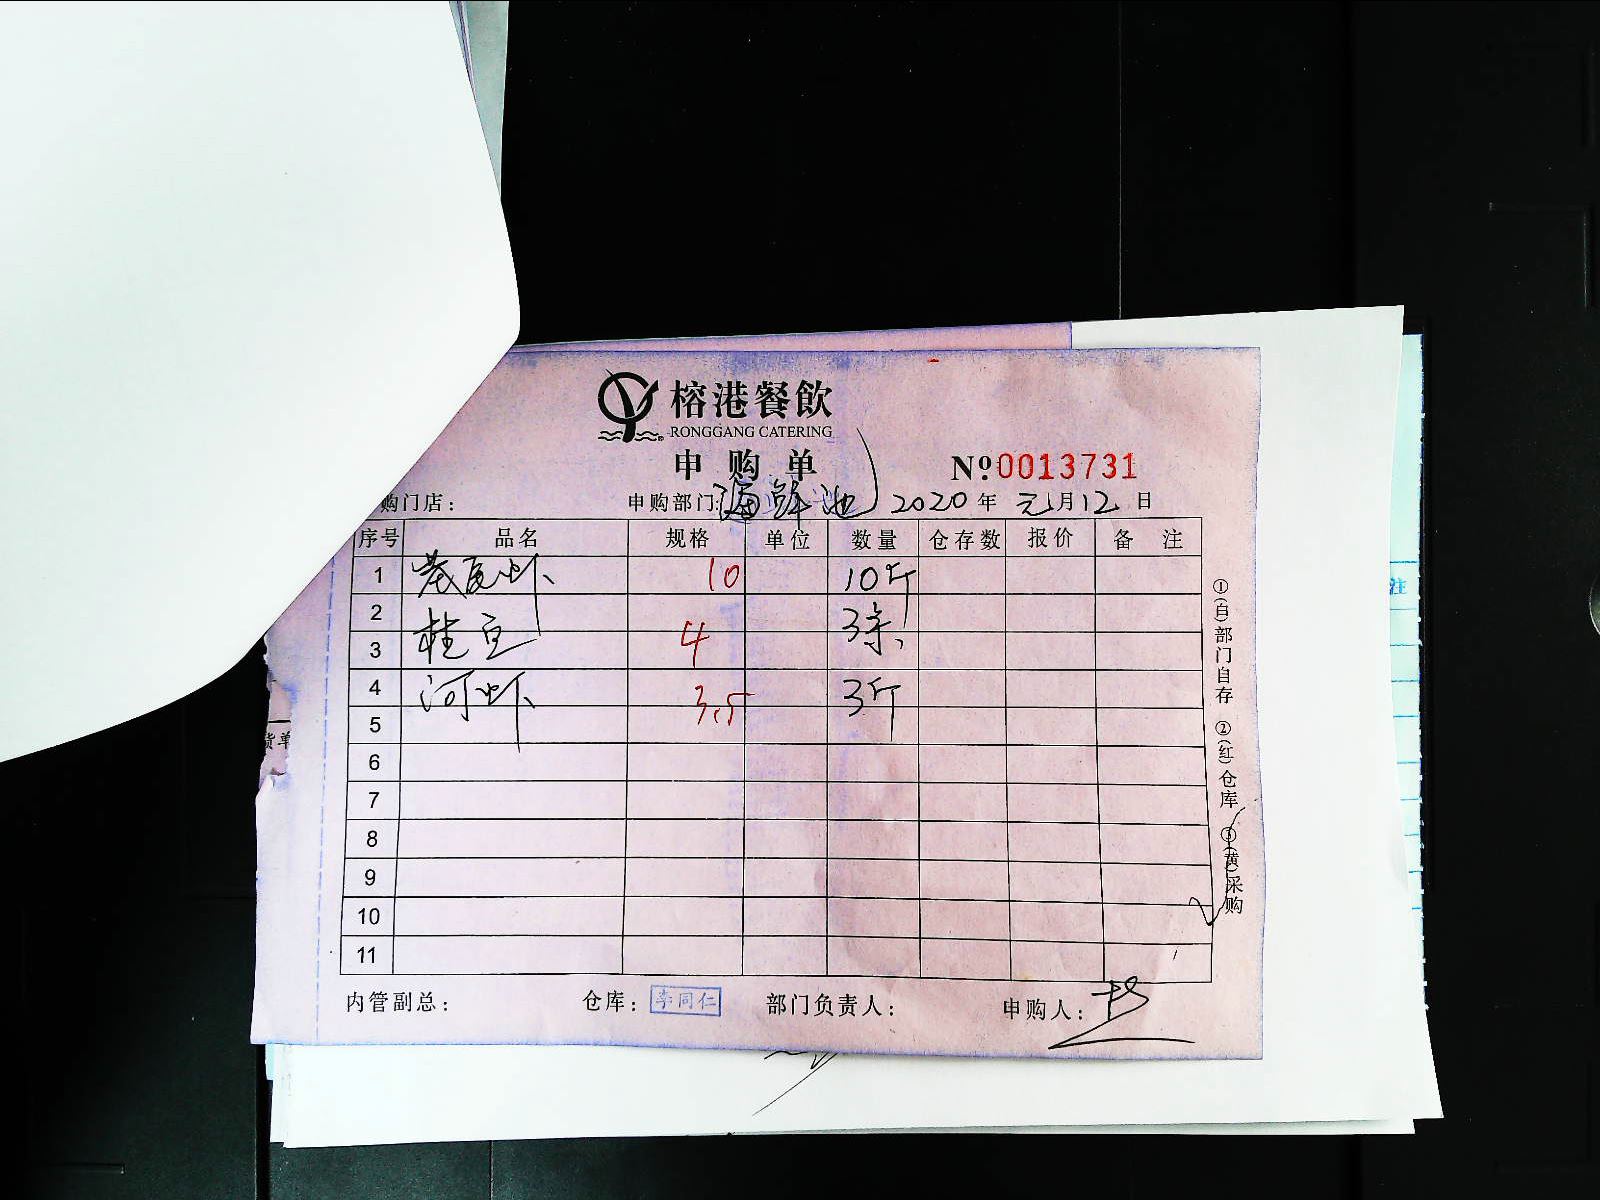 榕港餐飲
RONGGANG CATERING
申购单
№0013731
购门店： 申购部门：海鲜池 2020年元月12日
序号 品名 规格 单位 数量 仓存数 报价 备注
1 基尾虾 10 10斤
2
3 桂鱼 4 3条
4 河虾 3.5 3斤
5
6
7
8
9
10
11
内管副总： 仓库：李同仁 部门负责人： 申购人：
①(白)部门自存 ②(红)仓库 ③(黄)采购
货单
注